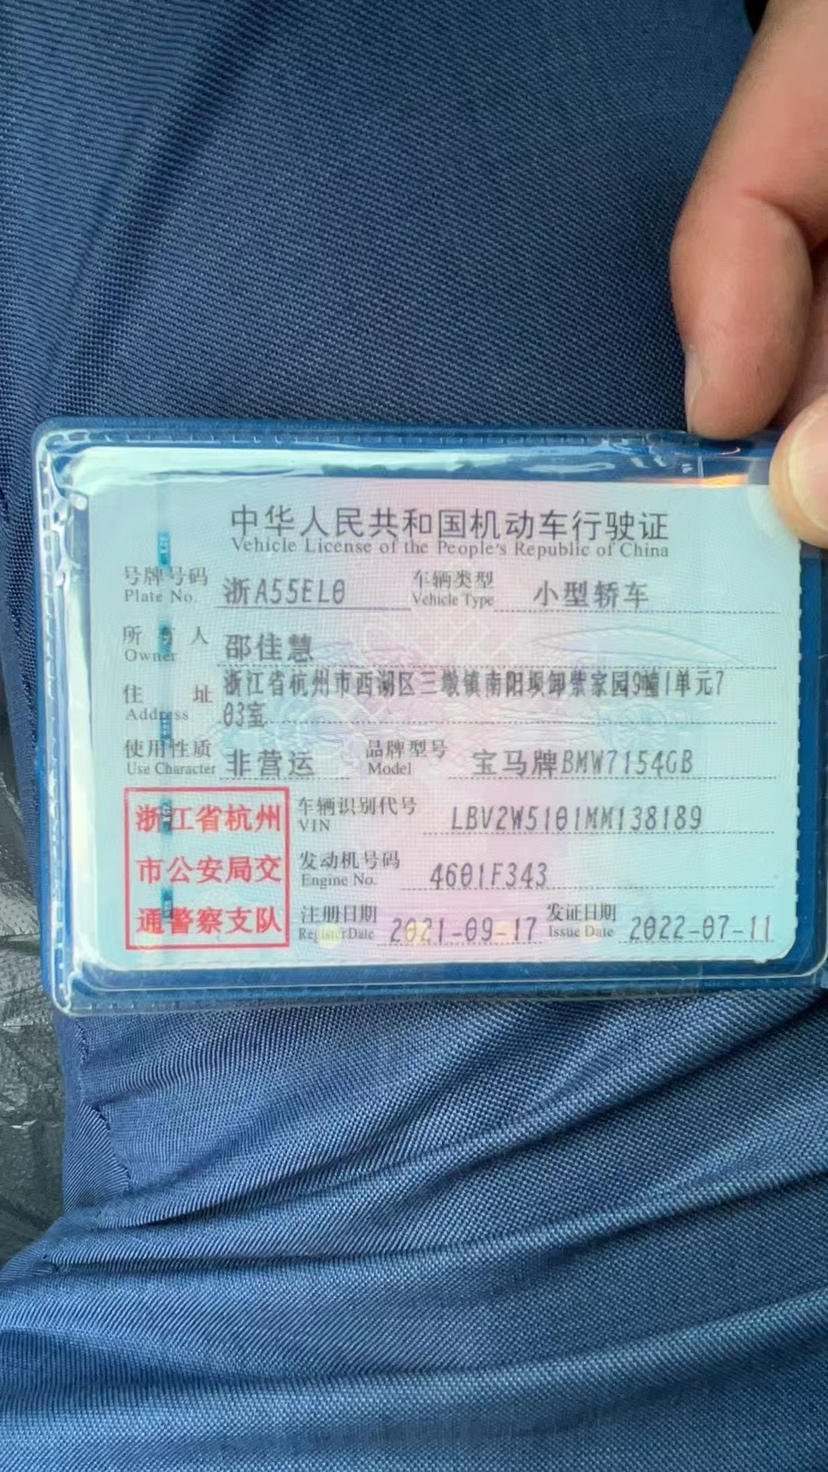 中华人民共和国机动车行驶证
Vehicle License of the People's Republic of China
号牌号码 浙A55EL0 车辆类型 小型轿车
Plate No. Vehicle Type
所有人 邵佳慧
Owner
住址 浙江省杭州市西湖区三墩镇南阳坝卸紫家园9幢1单元7
Address 03室
使用性质 非营运 品牌型号 宝马牌BMW7154GB
Use Character Model
浙江省杭州 车辆识别代号 LBV2W5101MM138189
VIN
市公安局交 发动机号码 4601F343
Engine No.
通警察支队 注册日期 2021-09-17 发证日期 2022-07-11
Register Date Issue Date